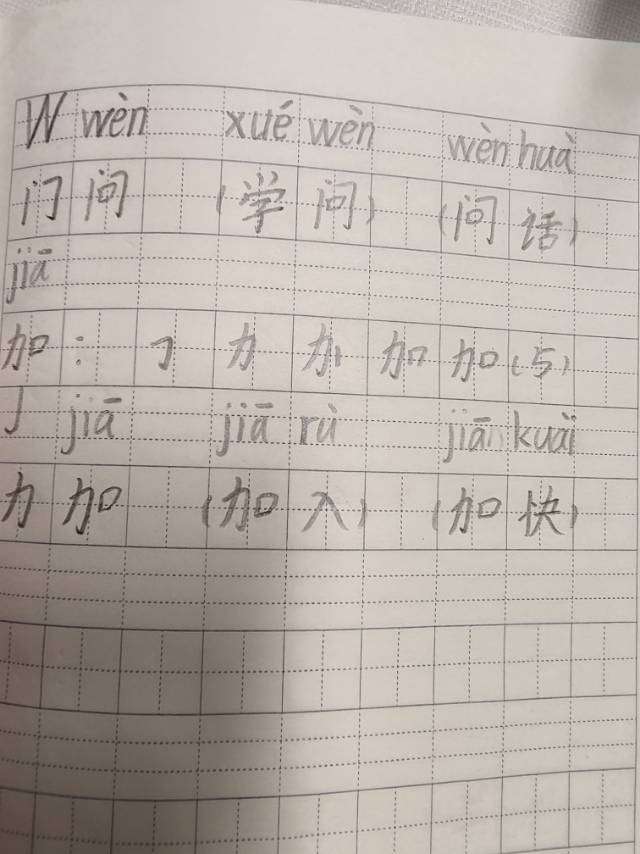 W wèn xué wèn wèn huà
门 问 (学 问) (问 话)
jiā
加: ㇆ 力 加 加 (5)
J jiā jiā rù jiā kuài
力 加 (加 入) (加 快)